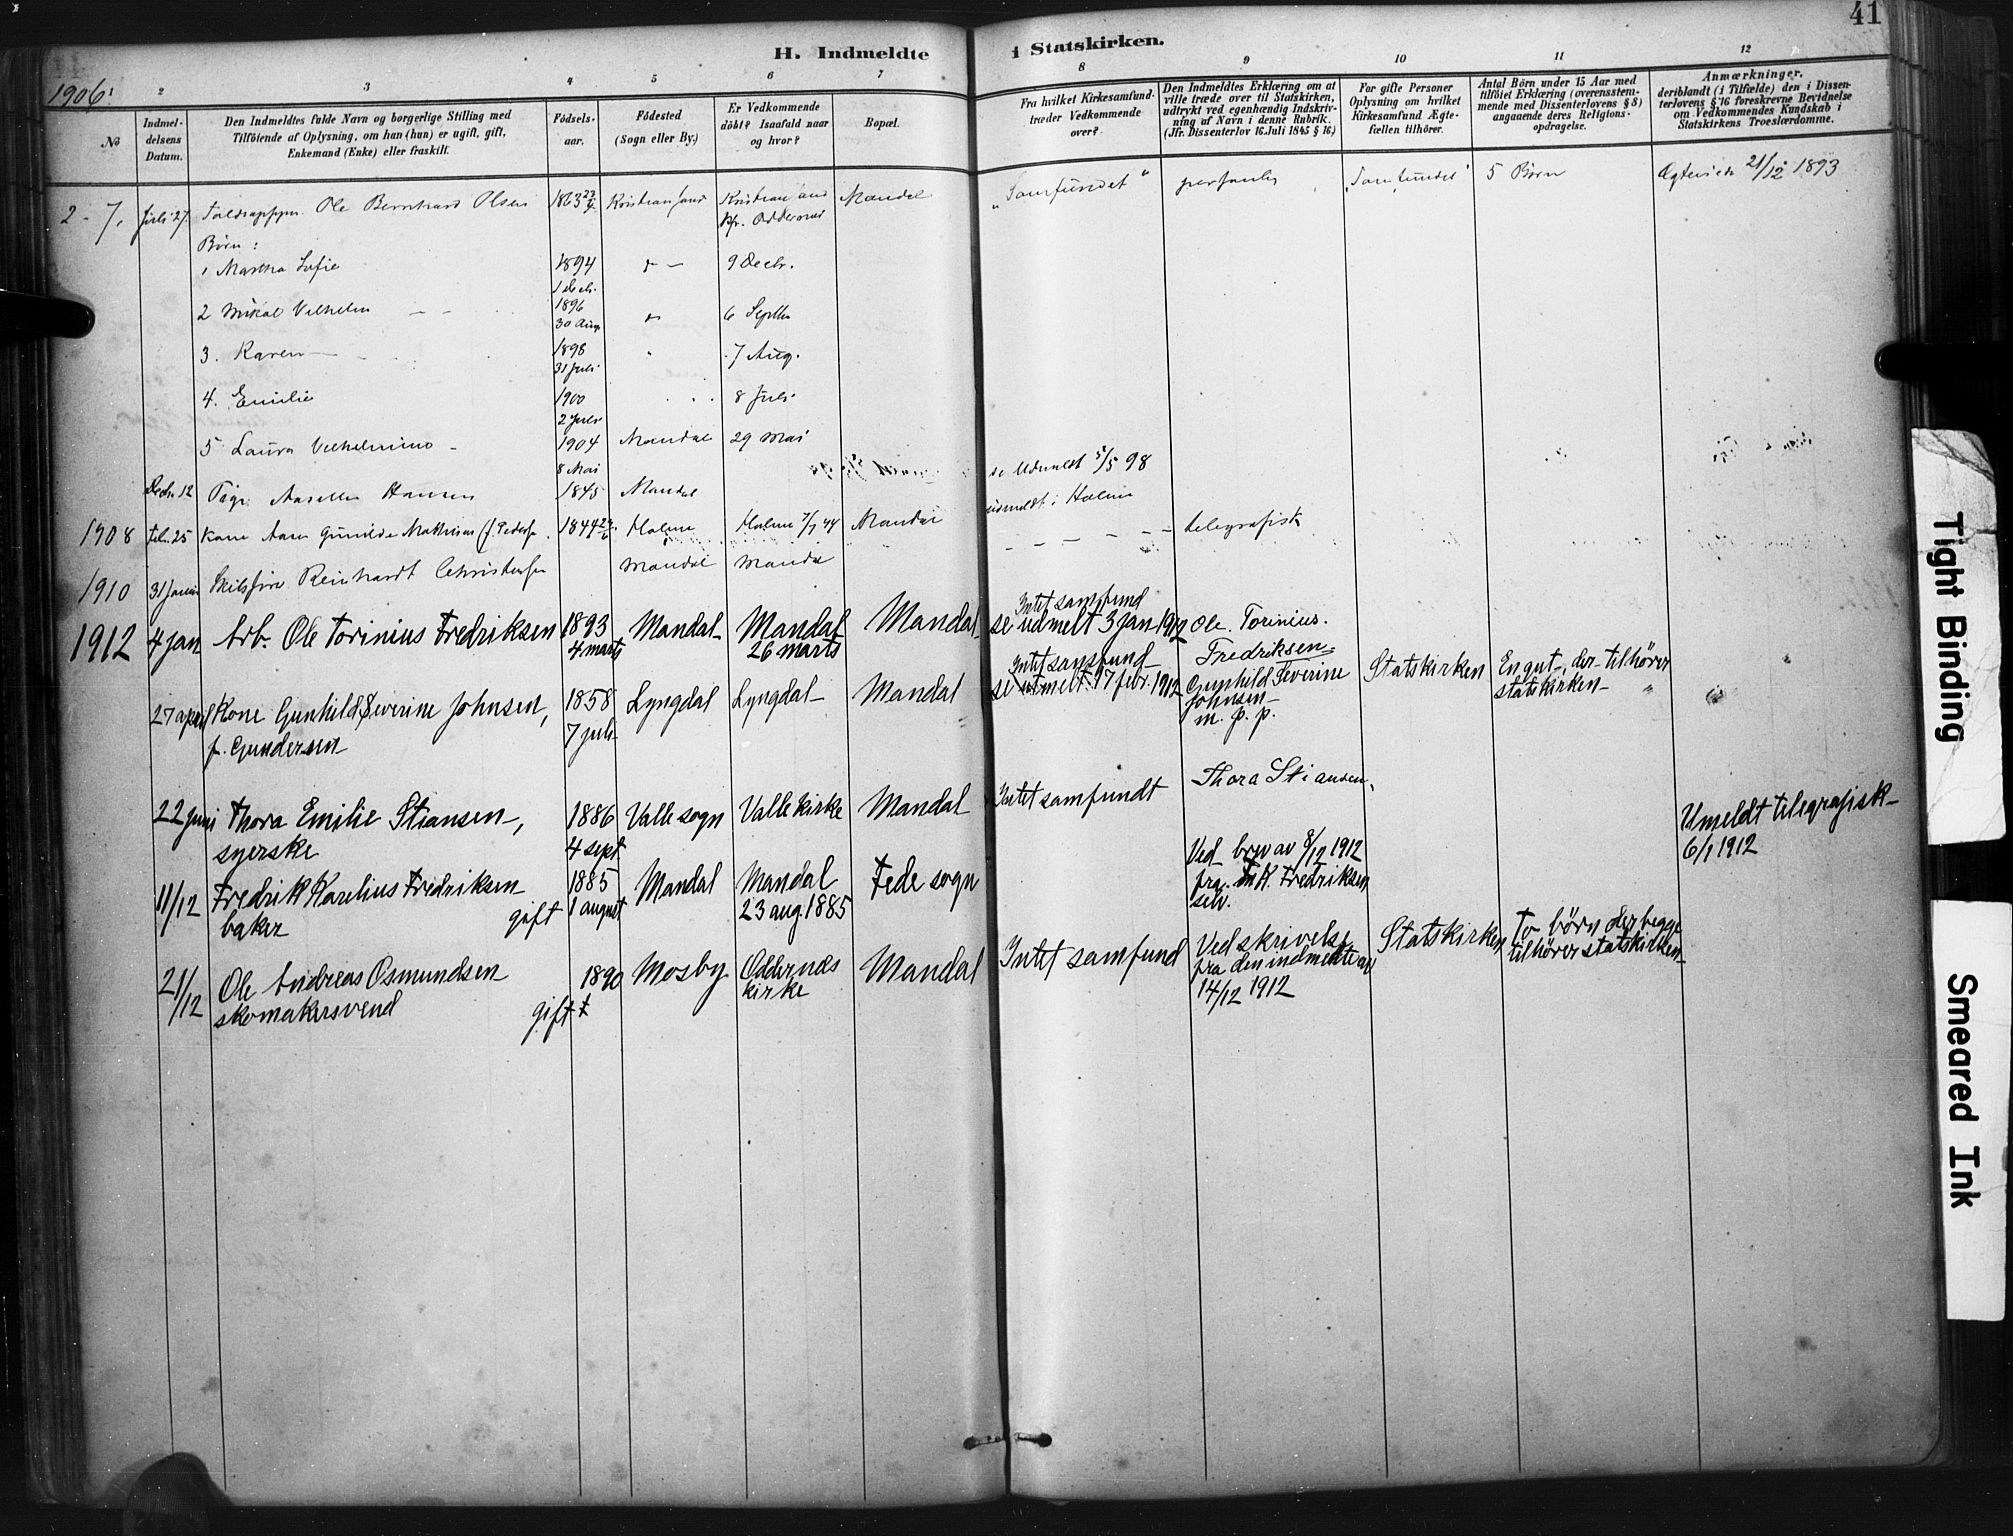 41
H. Indmeldte i Statskirken.
1906
1 2 3 4 5 6 7 8 9 10 11 12
No
Indmel-
delsens
Datum.
Den Indmeldtes fulde Navn og borgerlige Stilling med
Tilföiende af Oplysning, om han (hun) er ugift, gift,
Enkemand (Enke) eller fraskilt.
Födsels-
aar.
Födested
(Sogn eller By.)
Er Vedkommende
döbt? Isaafald naar
og hvor?
Bopæl.
Fra hvilket Kirkesamfund
træder Vedkommende
over?
Den Indmeldtes Erklæring om at
ville træde over til Statskirken,
udtrykt ved egenhændig Indskriv-
ning af Navn i denne Rubrik.
(Jfr. Dissenterlov 16. Juli 1845 § 16)
For gifte Personer
Oplysning om hvilket
Kirkesamfund Ægte-
fællen tilhörer.
Antal Börn under 15 Aar med
tilföiet Erklæring (overensstem-
mende med Dissenterlovens § 8)
angaaende deres Religions-
opdragelse.
Anmærkninger,
deriblandt (i Tilfælde) den i Dissen-
terlovens § 16 foreskrevne Bevidnelse
om Vedkommendes Kundskab i
Statskirkens Troeslærdomme.
2 - 7. Juli 27. Ole Bernhard Olsen 1863 Kristiansand Kristiansand Mandal "Samfundet" "Samfundet" 5 Børn 21/12 1893
Oddernes
Børn:
1 Martha Sofie 1894 9 Decbr.
1 Decbr.
2 Mikal Vilhelm 1896 6 Septbr
30 Aug.
3. Karen 1898 7 Aug.
31 Juli
4. Emilie 1900 8 Juli
2 Juli
5 Laura Vilhelmine 1904 Mandal 29 Mai
8 Mai
Decbr. 12 Pige Hansen 1845 Mandal se Udmeldt 5/5 98
1908 Feb. 25 Kone Gunilde Mathisen 1844 Holme Holme Mandal udmeldt i Holme
1910 31 Januar Reinhardt Christensen Mandal Mandal telegrafisk
1912 4 jan Arb. Ole Torinius Fredriksen 1893 Mandal Mandal Mandal Intet samfund
4 marts 26 marts se udmelt 3 jan 1912 Ole Torinius.
Fredriksen
27 april Kone Gunhild Severine Johnsen, 1858 Lyngdal Lyngdal Mandal Intet samfund
f. Gundersen 7 juli se utmelt 17 febr. 1912 Gunhild Severine
Johnsen
m. p. p. Statskirken En gut, der tilhører
statskirken
22 juni Thora Emilie Stiansen, 1886 Valle sogn Valle kirke Mandal Intet samfundt Thora Stiansen.
syerske 4 sept
11/12 Fredrik Karelius Fredriksen 1885 Mandal Mandal Fede sogn Ved brev av 8/12 1912
baker gift 1 august 23 aug. 1885 fra Fredriksen
selv. Utmeldt telegrafisk
6/1 1912
21/12 Ole Andreas Osmundsen 1890 Mosby Oddernes Mandal Intet samfund Ved skrivelse Statskirken To børn der begge
skomakersvend gift kirke fra den indmeldte av tilhører statskirken
14/12 1912
Tight Binding
Smeared Ink